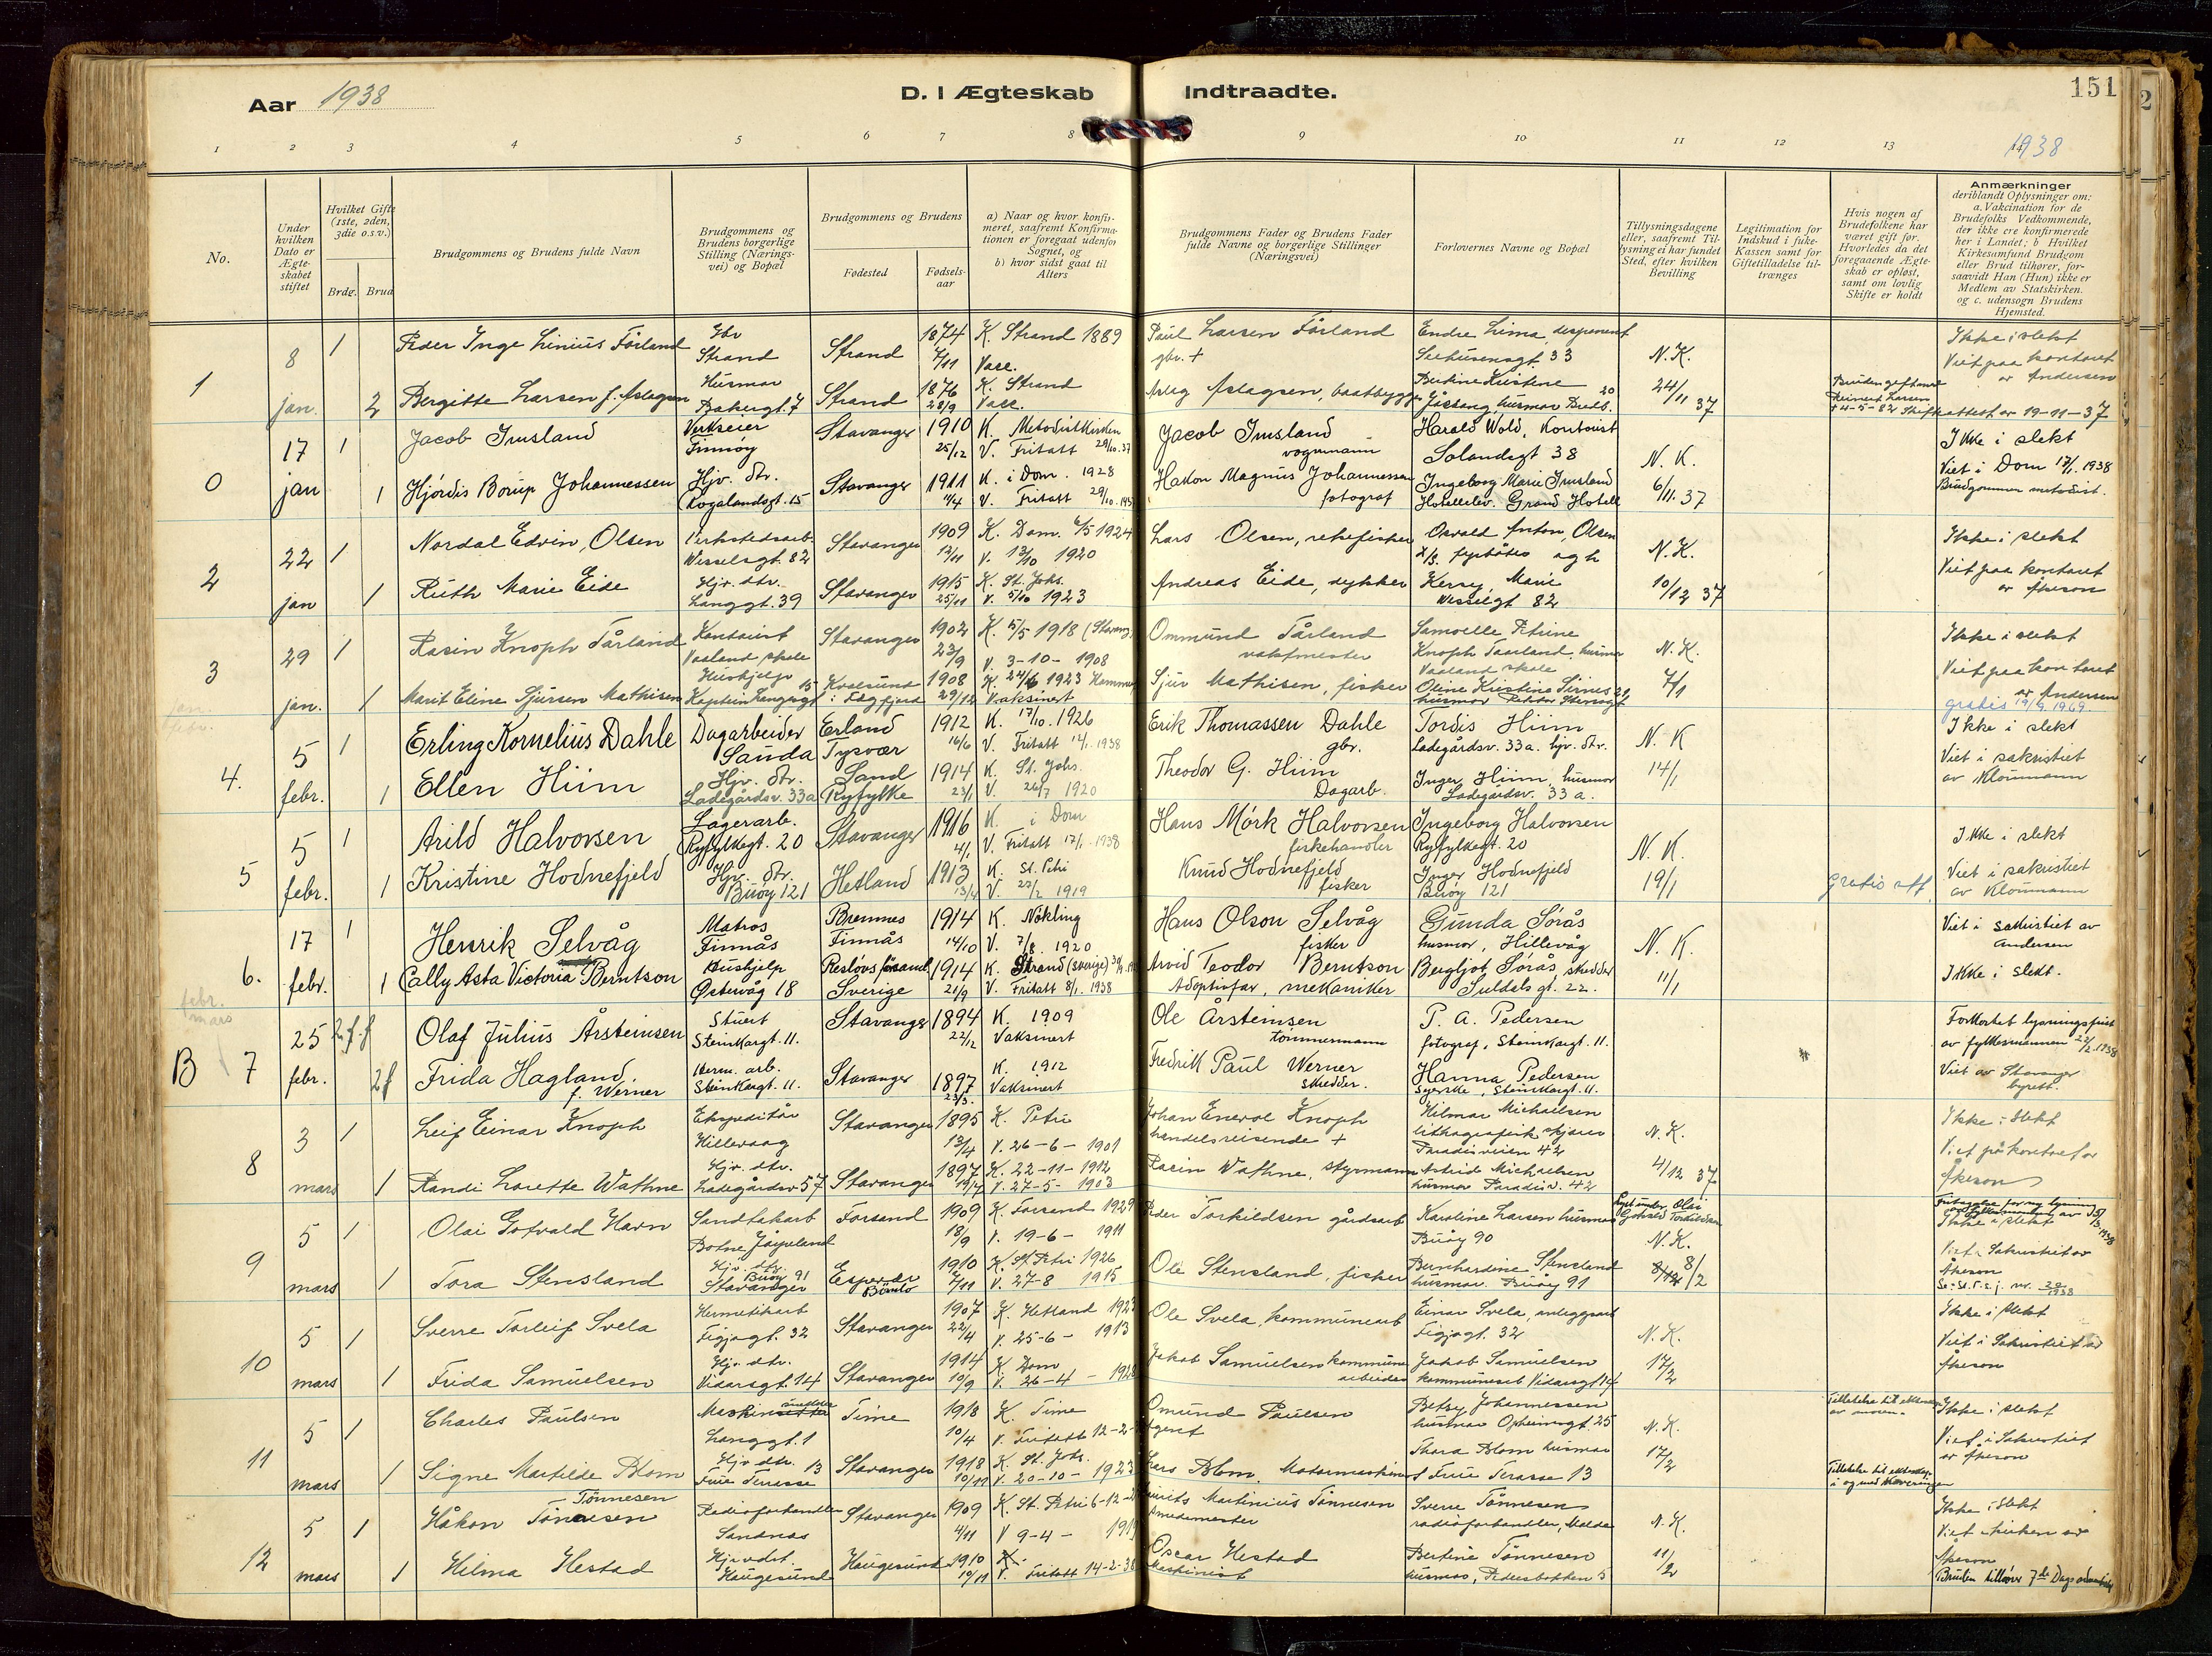 Aar 1938
D. I Ægteskab Indtraadte.
151
2
1 2 3 4 5 6 7 8 9 10 11 12 13
1938
No.
Under hvilken Dato er Ægteskabet stiftet
Hvilket Gifte (1ste, 2den, 3die o.s.v.)
Brdg. Brud
Brudgommens og Brudens fulde Navn
Brudgommens og Brudens borgerlige Stilling (Næringsvei) og Bopæl
Brudgommens og Brudens
Fødested
Fødselsaar
a) Naar og hvor konfirmeret, saafremt Konfirmationen er foregaat udenfor Sognet, og
b) hvor sidst gaat til Alters
Brudgommens Fader og Brudens Fader fulde Navne og borgerlige Stillinger (Næringsvei)
Forlovernes Navne og Bopæl
Tillysningsdagene eller, saafremt Tillysning ei har fundet Sted, efter hvilken Bevilling
Legitimation for Indskud i fuke-Kassen samt for Giftetilladelse tiltrænges
Hvis nogen af Brudefolkene har været gift før. Hvorledes da det foregaaende Ægteskab er opløst, samt om lovlig Skifte er holdt
Anmærkninger
deriblandt Oplysninger om: a. Vakcination for de Brudefolks Vedkommende, der ikke ere konfirmerede her i Landet; b Hvilket Kirkesamfund Brudgom eller Brud tilhører, forsaavidt Han (Hun) ikke er Medlem av Statskirken. og c. udensogn Brudens Hjemsted.
1
8 jan.
1
Peder Inge Linius Førland
Gbr Strand
Strand
1874 7/11
K. Strand 1889
Vacc.
Paul Larsen Førland
gbr. +
Endre Lima, disponent
Seehusensgt. 33
N. K.
24/11 37
Ikke i slekt
Viet paa kontoret
av Andersen
2
Bergitte Larsen f. Aslagsen
Husmor
Bakergt. 7
Strand
1876 28/9
K. Strand
Vacc.
Aslag Aslagsen, baatbygger
Skifteattest av 19-11-37
0
17 jan
1
Jacob Imsland
Verkseier
Finnøy
Stavanger
1910 25/12
K. Metodistkirken
V. Fritatt 29/10. 37
Jacob Imsland
vognmann
Harald Wold, Kontorist
Solandsgt 38
N. K.
6/11. 37
Ikke i slekt
Viet i Dom 17/1. 1938
Brudgommen metodist.
1
Hjørdis Borup Johannessen
Hjv. dtr.
Rogalandsgt. 15
Stavanger
1911 11/4
K. i Dom. 1928
V. Fritatt 29/10. 1937
Hakon Magnus Johannessen
fotograf
Ingeborg Marie Imsland
Hotellelev. Grand Hotell
2
22 jan
1
Nordal Edvin Olsen
Verkstedsarb.
Wesselsgt. 82
Stavanger
1909 12/11
K. Dom. 4/5 1924
V. 12/10 1920
Lars Olsen, rekefisker
Osvald Anton Olsen
N. K.
10/12 37
Ikke i slekt
Viet paa kontoret
av Åkeson
1
Ruth Marie Eide
Hjv. dtr.
Langgt. 39
Stavanger
1915 25/11
K. St. Johs.
V. 5/10 1923
Andreas Eide, dykker
Wesselgt 82
3
29 jan.
1
Rasin Knoph Tårland
Kontorist
Vaaland skole
Stavanger
1902 23/9
K. 5/5 1918 (Stavang.)
V. 3-10-1908
Ommund Tårland
vaktmester
Samoelle Petrine
Knoph Taarland, husmor
Vaaland skole
N. K.
7/1
Ikke i slekt
Viet paa kontoret
av Andersen
gratis 19/9. 1969.
1
Marit Eline Sjursen Mathisen
Hushjelp
Kaptein Langesgt 15
Kvalsund i Fægfjord
1908 29/12
K 24/6 1923 Hammerf.
Vaksinert
Sjur Mathisen, fisker
4.
5 febr.
1
Erling Kornelius Dahle
Dagarbeider
Sauda
Erland
Tysvær
1912 16/6
K. 17/10. 1926
V. Fritatt 14/1. 1938
Erik Thomassen Dahle
gbr.
Tordis Hiim
Ladegårdsv. 33a. hjv. dtr.
N. K
14/1
Ikke i slekt
Viet i sakristiet
av Kloumann
1
Ellen Hiim
Hjv. dtr.
Ladegårdsv. 33a
Sand
Ryfylke
1914 23/1
K. St. Johs.
V. 26/7 1920
Theodor G. Hiim
Dagarb.
Inger Hiim, husmor
Ladegårdsv. 33 a.
5
5 febr.
1
Arild Halvorsen
Lagerarb.
Ryfylkegt. 20
Stavanger
1916 4/1
K. i Dom
V. Fritatt 17/1. 1938
Hans Mørk Halvorsen
fiskehandler
Ingeborg Halvorsen
Ryfylkegt. 20
N. K.
19/1
Gratis att.
Ikke i slekt
Viet i sakristiet
av Kloumann
1
Kristine Hodnefjeld
Hjv. dtr.
Buøy 121
Hetland
1913 13/4
K. St. Petri
V. 22/2 1919
Knud Hodnefjeld
fisker
Inger Hodnefjeld
Buøy 121
6.
17 febr.
1
Henrik Selvåg
Matros
Finnås
Bremnes
Finnås
1914 14/10
K. Nökling
V. 7/8. 1920
Hans Olson Selvåg
fisker
Gunda Sørås
husmor, Hillevåg
N. K.
11/1
Viet i sakristiet av
Andersen
Ikke i slekt.
1
Cally Asta Victoria Berntson
Hushjelp
Østervåg 18
Sverige
1914 21/9
K. Strand (Sverige)
V. Fritatt 8/1. 1938
Arvid Teodor Berntson
Adoptivfar, mekaniker
Bergljot Sørås, skredder
Suldals gt. 22.
febr.
mars
B 7
25 febr.
2 f f
Olaf Julius Årsteinsen
Stuert
Steinkargt. 11.
Stavanger
1894 22/12
K. 1909
Vaksinert
Ole Årsteinsen
tømmermann
P. A. Pedersen
fotograf, Steinkargt. 11.
Forkortet lysningsfrist
av fylkesmannen 22/2. 1938
Viet av Stavanger
byrett.
2 f
Frida Hagland
f. Werner
Herm. arb.
Steinkargt. 11.
Stavanger
1897 23/3.
K. 1912
Vaksinert
Fredrik Paul Werner
skredder.
Hanna Pedersen
syerske, Steinkargt. 11.
8
3 mars
1
Leif Einar Knoph
Ekspeditør
Hillevaag
Stavanger
1895 13/4
K. Petri
V. 26-6-1901
Johan Enevol Knoph
handelsreisende +
Hilmar Michaelsen
Paradisveien 42
N. K.
4/12 37
Ikke i slekt
Viet på kontoret av
Åkeson
1
Randi Lorette Wathne
Hjv. dtr.
Ladegårdsv 57
Stavanger
1897 19/4
K. 22-11-1912
V. 27-5-1903
Rasin Wathne, styrmann
Astrid Michaelsen
husmor Paradisv. 42
9
5 mars
1
Olai Gotvald Havn
Sandtakarb
Botne Jøypeland
Forsand
1909 18/9
K. Forsand 1929
V. 19-6-1911
Peder Torkildsen gårdsarb
Karoline Larsen husmor
Buøy 90
Lyst under Olai
Gotvald Torkildsen
N. K.
8/2
Ikke i slekt
Viet i Sakristiet av
Åkeson
1
Tora Stensland
Hjv. dtr.
Buøy 91
Stavanger
Espevær
Bömlo
1910 7/11
K. St. Petri 1926
V. 27-8 1915
Ole Stensland, fisker
Bernhardine Stensland
husmor. Buøy 91
10
5 mars
1
Sverre Torleif Svela
Hermetikarb
Figjogt. 32
Stavanger
1907 22/4
K. Hetland 1923
V. 25-6-1913
Ole Svela, kommunearb
Einar Svela, anleggsarb
Figjogt. 32
N. K.
17/2
Ikke i slekt
Viet i Sakristiet av
Åkeson
1
Frida Samuelsen
Hjv. dtr.
Vidarsgt. 14
Stavanger
1914 10/9
K. Dom
V. 26-4-1928
Jakob Samuelsen kommune
arbeider
Jakob Samuelsen
kommunearb Vidarsgt 14
11
5 mars
1
Charles Paulsen
Langgt. 1
Time
1918 10/4
K. Time
V. Fritatt 12-2-
Omund Paulsen
Agent
Betsy Johannessen
husmor Opheimsgt. 25
N. K.
17/2
Ikke i slekt
Viet i Sakristiet
av Åkeson
1
Signe Martilde Blom
Hjv dtr.
Frue Terasse 13
Stavanger
1918 10/11
K. St. Johs.
V. 20-10-1923
Lars Blom, Motormaskinist
Thora Blom husmor
Frue Terasse 13
12
5 mars
1
Håkon Tönnesen
Tönnesen
Radioforhandler
Sandnes
Stavanger
1909 4/11
K. St. Petri 6-12-
V 9-4-
Martinius Tönnesen
Sverre Tönnesen
radioforhandler, Molde
N. K.
11/2
Ikke i slekt
Viet i kirken av
Åkeson
Bruden tilhører 7de Dags adventister
1
Hilma Hestad
Hjv.dtr.
Haugesund
Haugesund
1910 10/11
K.
V. Fritatt 14-2-38
Oscar Hestad
Maskinist
Bertine Tönnesen
husmor, Pedersbakken 5